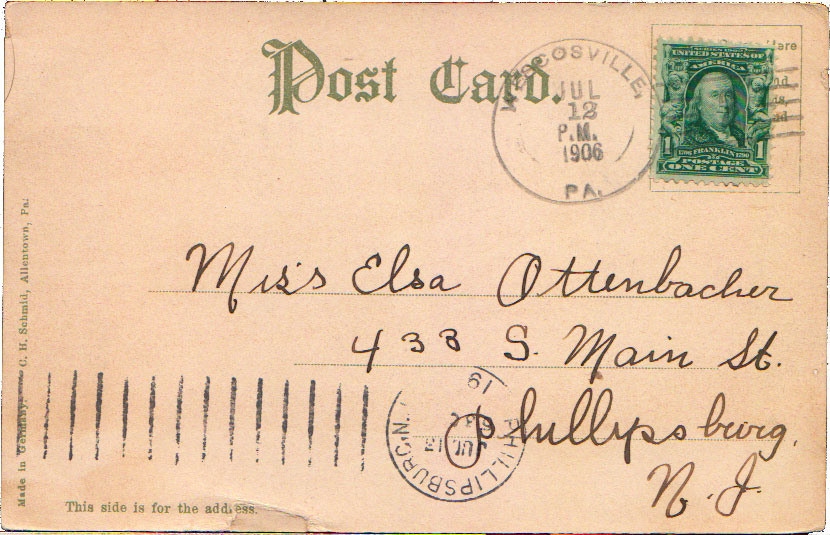 Post Card.
WESCOSVILLE,
JUL
12
P.M.
1906
PA.
SERIES 1902
UNITED STATES OF
AMERICA
1706 FRANKLIN 1790
1 POSTAGE 1
ONE CENT
Miss Elsa Ottenbacher
433 S. Main St.
Phillipsburg,
N. J.
PHILLIPSBURG, N.
JUL 13
19
Made in Germany. C. H. Schmid, Allentown, Pa.
This side is for the address.